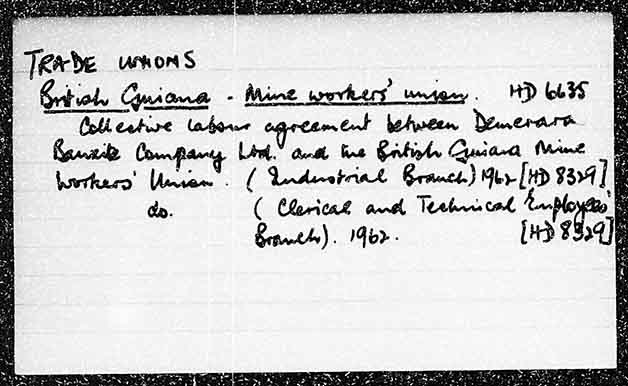 TRADE UNIONS
British Guiana - Mine workers' union. HD 6635
Collective labour agreement between Demerara
Bauxite Company Ltd. and the British Guiana Mine
Workers' Union. (Industrial Branch) 1962 [HD 8329]
do. (Clerical and Technical Employees'
Branch). 1962. [HD 8329]